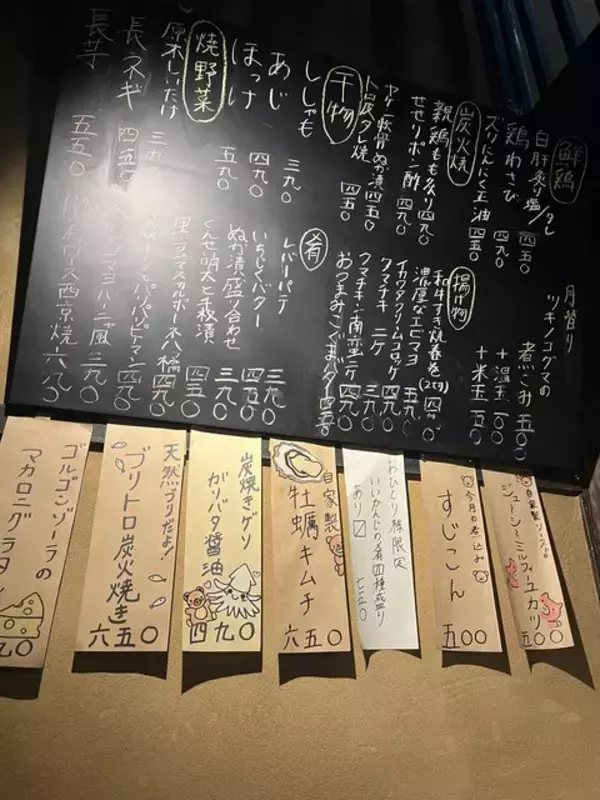 鮮鶏
白肝炙り塩/タレ 四五〇
鶏わさび 四九〇
ズリにんにく玉油 四五〇
炭火焼
親鶏もも炙り 四九〇
せせりポン酢 四九〇
ヤゲン軟骨ぬか漬 四五〇
トロ豚タン焼 四五〇
干物
ししゃも 三九〇
あじ 四九〇
ほっけ 五九〇
焼野菜
原木しいたけ 三九〇
長ネギ 四五〇
長芋 五五〇
月替り
ツキノコグマの
煮こみ 五〇〇
+温玉 一〇〇
+米玉 一五〇
揚げ物
和牛すき焼春巻(2ヶ)
濃厚なエビマヨ 五九〇
イカワタクリームコロッケ 四九〇
クマチキ 二ケ 三九〇
クマチキン南蛮 二ケ 四九〇
おつまみこぐまバター 四五〇
〆肴
レバーパテ 三九〇
いちじくバター 四五〇
ぬか漬盛り合わせ 三九〇
くんせい明太と千枚漬 四五〇
四九〇
パリパリピーマン 四九〇
三九〇
西京焼 六九〇
自家製ソースの
ジューシーミルフィーユカツ
五〇〇
今月の煮込み
すじこん
五〇〇
おひとり様限定
いいかんじの肴四種盛り
あり〼 七五〇
自家製
牡蠣キムチ
六五〇
炭焼きゲソ
ガリバタ醤油
四九〇
天然ブリだよ!
ブリトロ炭火焼き
六五〇
ゴルゴンゾーラの
マカロニグラタン